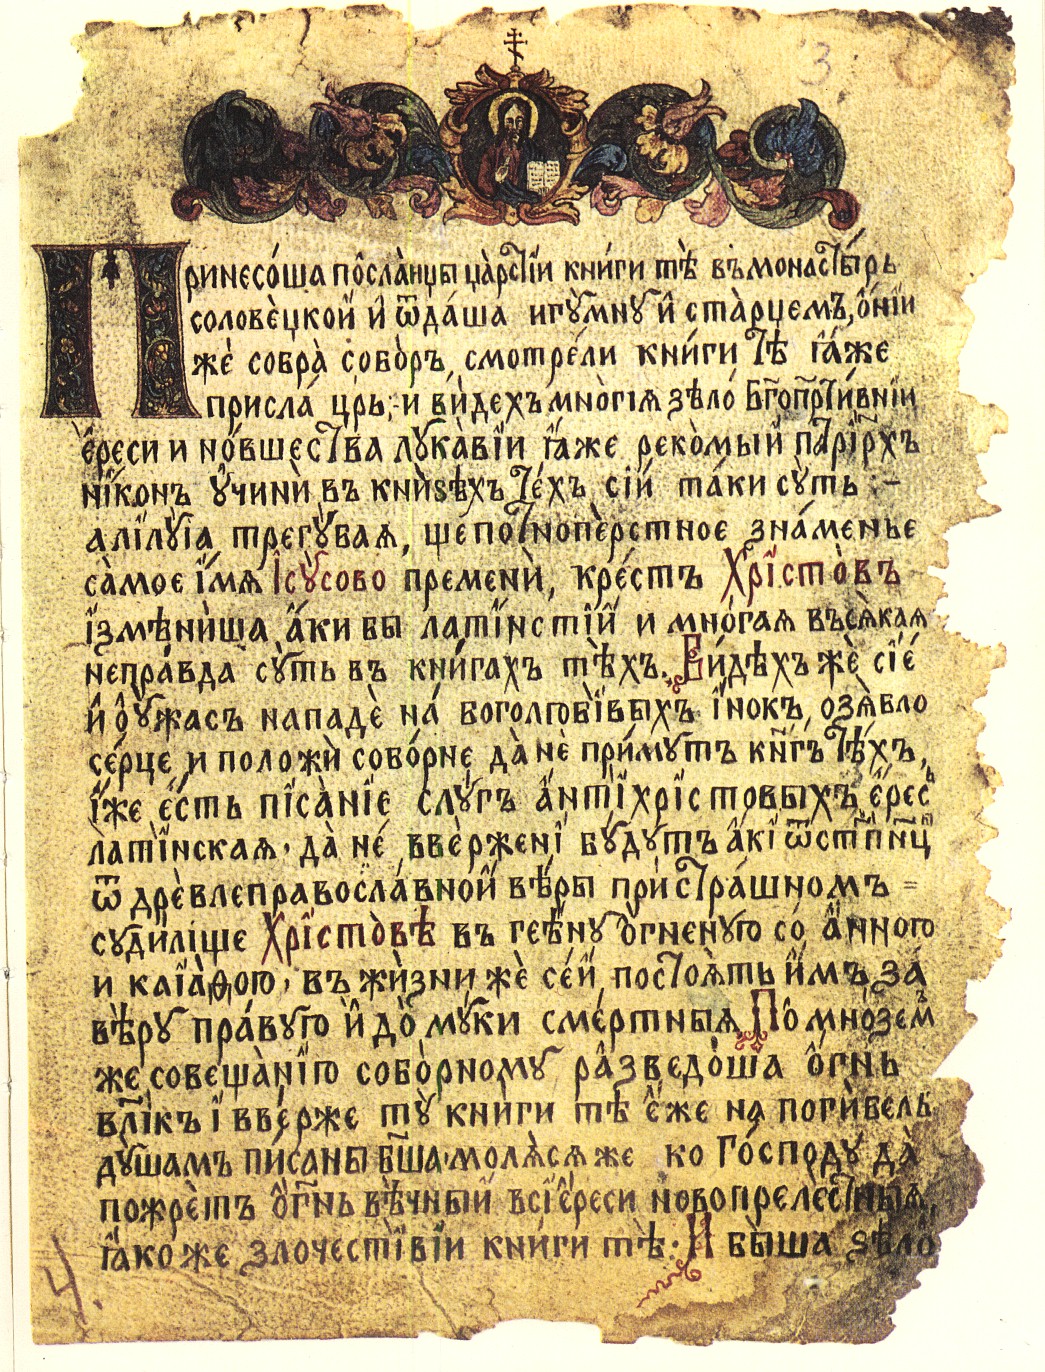 3
Принесо́ша по̑сла̀нцы ца̀рстїи кни́ги тѣ въ монасты́рь
соловѐцкой и҆ ѿда́ша игу́мну и҆ ста̀рцемъ, о҆нїи
жѐ собра̀ собо̀ръ, смотре́ли кни́ги тѣ ꙗ҆́же
присла́ црь, и ви́дехъ мно̀гїѧ ѕѣло́ бг҃опрти́внїи
є҆́реси и но́вшества лука̀вїи ꙗ҆́же реко̀мый патрїрхъ
ні́конъ ᲂу҆чинѝ въ кни̑ѕѣхъ те́хъ сїй та́ки су́ть :~
алілу́їа трегу́бая, щепотнопѐрстное зна́менье
са̀моє і҆́мѧ І҆су́сово променѝ, кре́стъ Хрі́сто̀въ
і҆змѣнѝша а҆́ки бы латі́нстїй и мно́гая въсѧ̀кая
непра́вда су̀ть въ кни́гахъ тѣ̀хъ. Ви́дѣхъ жѐ сїе́
и҆ о҆́ужасъ нападѐ на́ боголюбі́выхъ і҆нокъ, озѧ̀бло
се́рце, и положѝ собо́рне да̀ нѐ при́мутъ кнг҃ъ тѣ́хъ,
і҆́же є҆́сть пїса̀нїє слу́гъ а҆нтїхрі́стовыхъ, є҆́рес
латі̀нская. да̀ не́ ввѐржені бу́дутъ а҆́кї ѿстпнц
ѿ дрѐвлеправосла́вной вѣ́ры при стра́шномъ =
судилі́ще Хрі́сто̀вѣ въ геѣ́ну о҆́гненую со́ а҆́нного
и каїа̀ѳою, въ жѝзни жѐ се́й, постоѧ̀ть и҆́мъ за́
вѣ̀ру пра́вую и҆ до̀ му́ки сме́ртныѧ. По́ мно́земъ
же совеща̀нїю собо̀рному разведо́ша о҆́гнь
вл҃їкъ ї вве́рже ту̀ кни́ги тѣ є҆́же на поги́бель
ду́шамъ пи́саны бш҃а. молѧ̀сѧ же ко Го́споду да̀
пожрѐтъ о҆́гнь вѣ́чный всї є҆́реси новопреле́стныѧ,
ꙗ҆́ко же злочести́вїи кни́ги тѣ. И бы́ша ѕѣло̀
4.